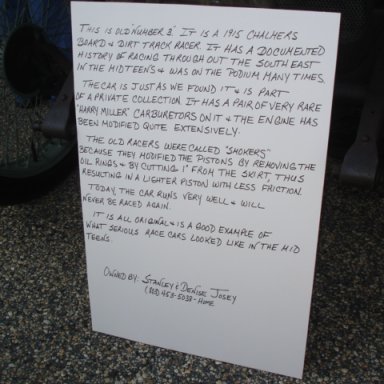 THIS IS OLD "NUMBER 2". IT IS A 1915 CHALMERS
BOARD & DIRT TRACK RACER. IT HAS A DOCUMENTED
HISTORY OF RACING THROUGH OUT THE SOUTH EAST
IN THE MID TEENS & WAS ON THE PODIUM MANY TIMES.
THE CAR IS JUST AS WE FOUND IT & IS PART
OF A PRIVATE COLLECTION. IT HAS A PAIR OF VERY RARE
"HARRY MILLER" CARBURETORS ON IT & THE ENGINE HAS
BEEN MODIFIED QUITE EXTENSIVELY.
THE OLD RACERS WERE CALLED "SMOKERS"
BECAUSE THEY MODIFIED THE PISTONS BY REMOVING THE
OIL RINGS & BY CUTTING 1" FROM THE SKIRT, THUS
RESULTING IN A LIGHTER PISTON WITH LESS FRICTION.
TODAY, THE CAR RUNS VERY WELL & WILL
NEVER BE RACED AGAIN.
IT IS ALL ORIGINAL & IS A GOOD EXAMPLE OF
WHAT SERIOUS RACE CARS LOOKED LIKE IN THE MID
TEENS.
OWNED BY: STANLEY & DENISE JOSEY
453-5038 - HOME